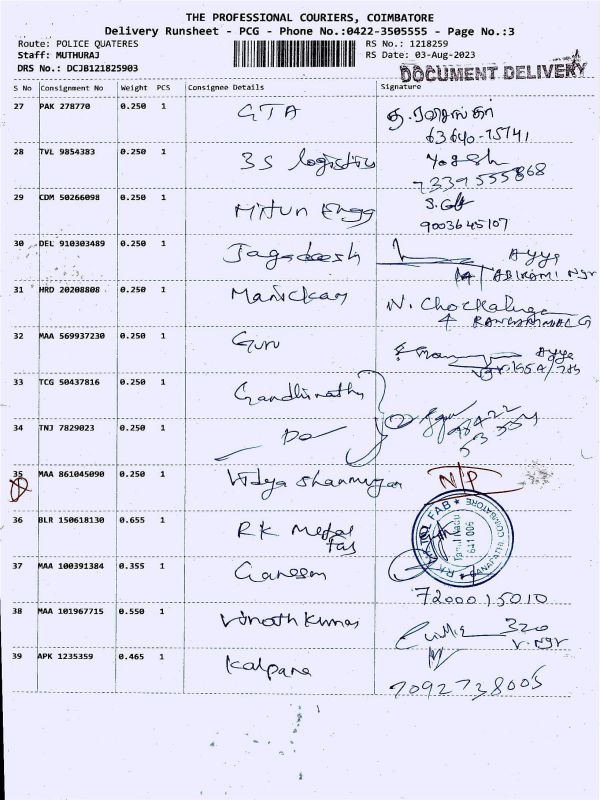 THE PROFESSIONAL COURIERS, COIMBATORE
Delivery Runsheet - PCG - Phone No.:0422-3505555 - Page No.:3
Route: POLICE QUATERES RS No.: 1218259
Staff: MUTHURAJ RS Date: 03-Aug-2023
DRS No.: DCJB121825903
DOCUMENT DELIVERY
S No Consignment No Weight PCS Consignee Details Signature
27 PAK 278770 0.250 1 GTA
63640-75141
28 TVL 9854383 0.250 1 3S logistics Yogesh
7339555868
29 CDM 50266098 0.250 1 Mithun Engg
9003645107
30 DEL 910303489 0.250 1 Jagadeesh Ayya
31 HRD 20208808 0.250 1 Manickam N. Chockalinga
32 MAA 569937230 0.250 1 Guru Ayya
33 TCG 50437816 0.250 1 Gandhinathi
34 TNJ 7829023 0.250 1 Do
35 MAA 861045090 0.250 1 Vidya Shanmugan N/P
36 BLR 150618130 0.655 1 RK Metal Fab
RK METAL FAB GANAPATHI COIMBATORE
Tamil Nadu
641 006
37 MAA 100391384 0.355 1 Ganesan
7200015010
38 MAA 101967715 0.550 1 Vinoth Kumar 320
V. Ngr
39 APK 1235359 0.465 1 Kalpana
7092738005